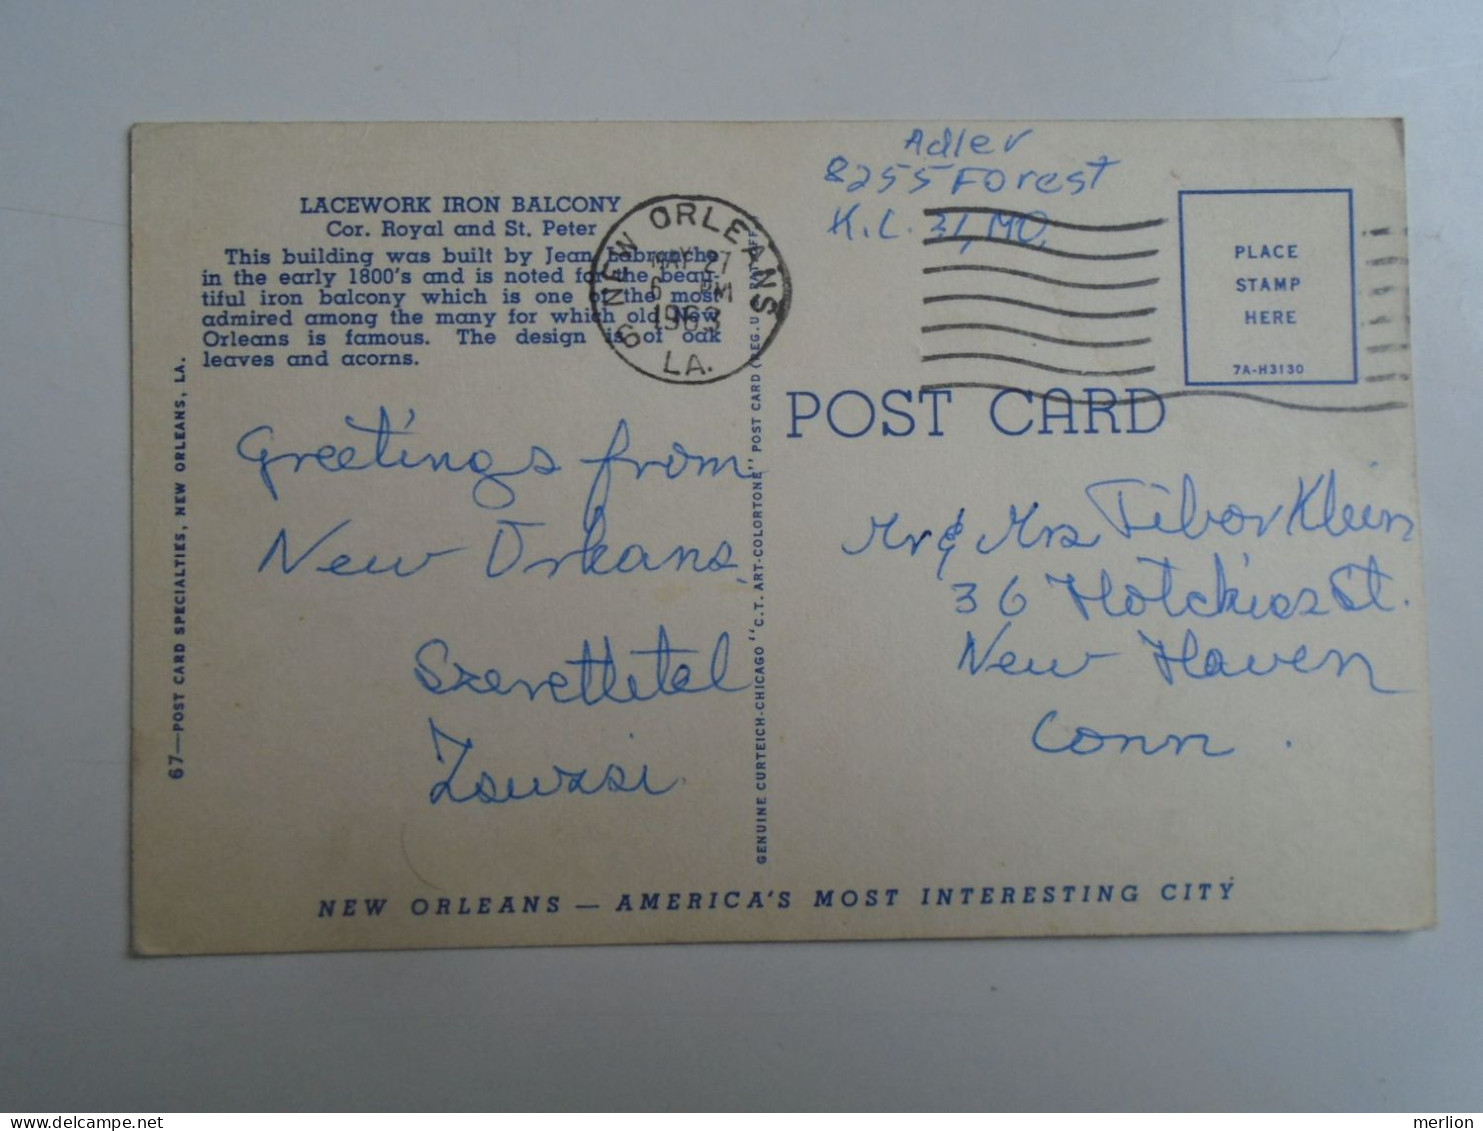 LACEWORK IRON BALCONY
Cor. Royal and St. Peter
This building was built by Jean Labranche
in the early 1800's and is noted for the beau-
tiful iron balcony which is one of the most
admired among the many for which old New
Orleans is famous. The design is of oak
leaves and acorns.
Greetings from
New Orleans,
Szeretettel
Zsuzsi
67—POST CARD SPECIALTIES, NEW ORLEANS, LA.
NEW ORLEANS
LA.
9
6
MAY 27
6 PM
1963
GENUINE CURTEICH-CHICAGO "C.T. ART-COLORTONE" POST CARD (REG. U.S. PAT. OFF.)
Adler
8255 Forest
K.C. 31, MO.
PLACE
STAMP
HERE
7A-H3130
POST CARD
Mr & Mrs Tibor Klein
36 Hotchkiss St.
New Haven
Conn.
NEW ORLEANS — AMERICA'S MOST INTERESTING CITY
merlion